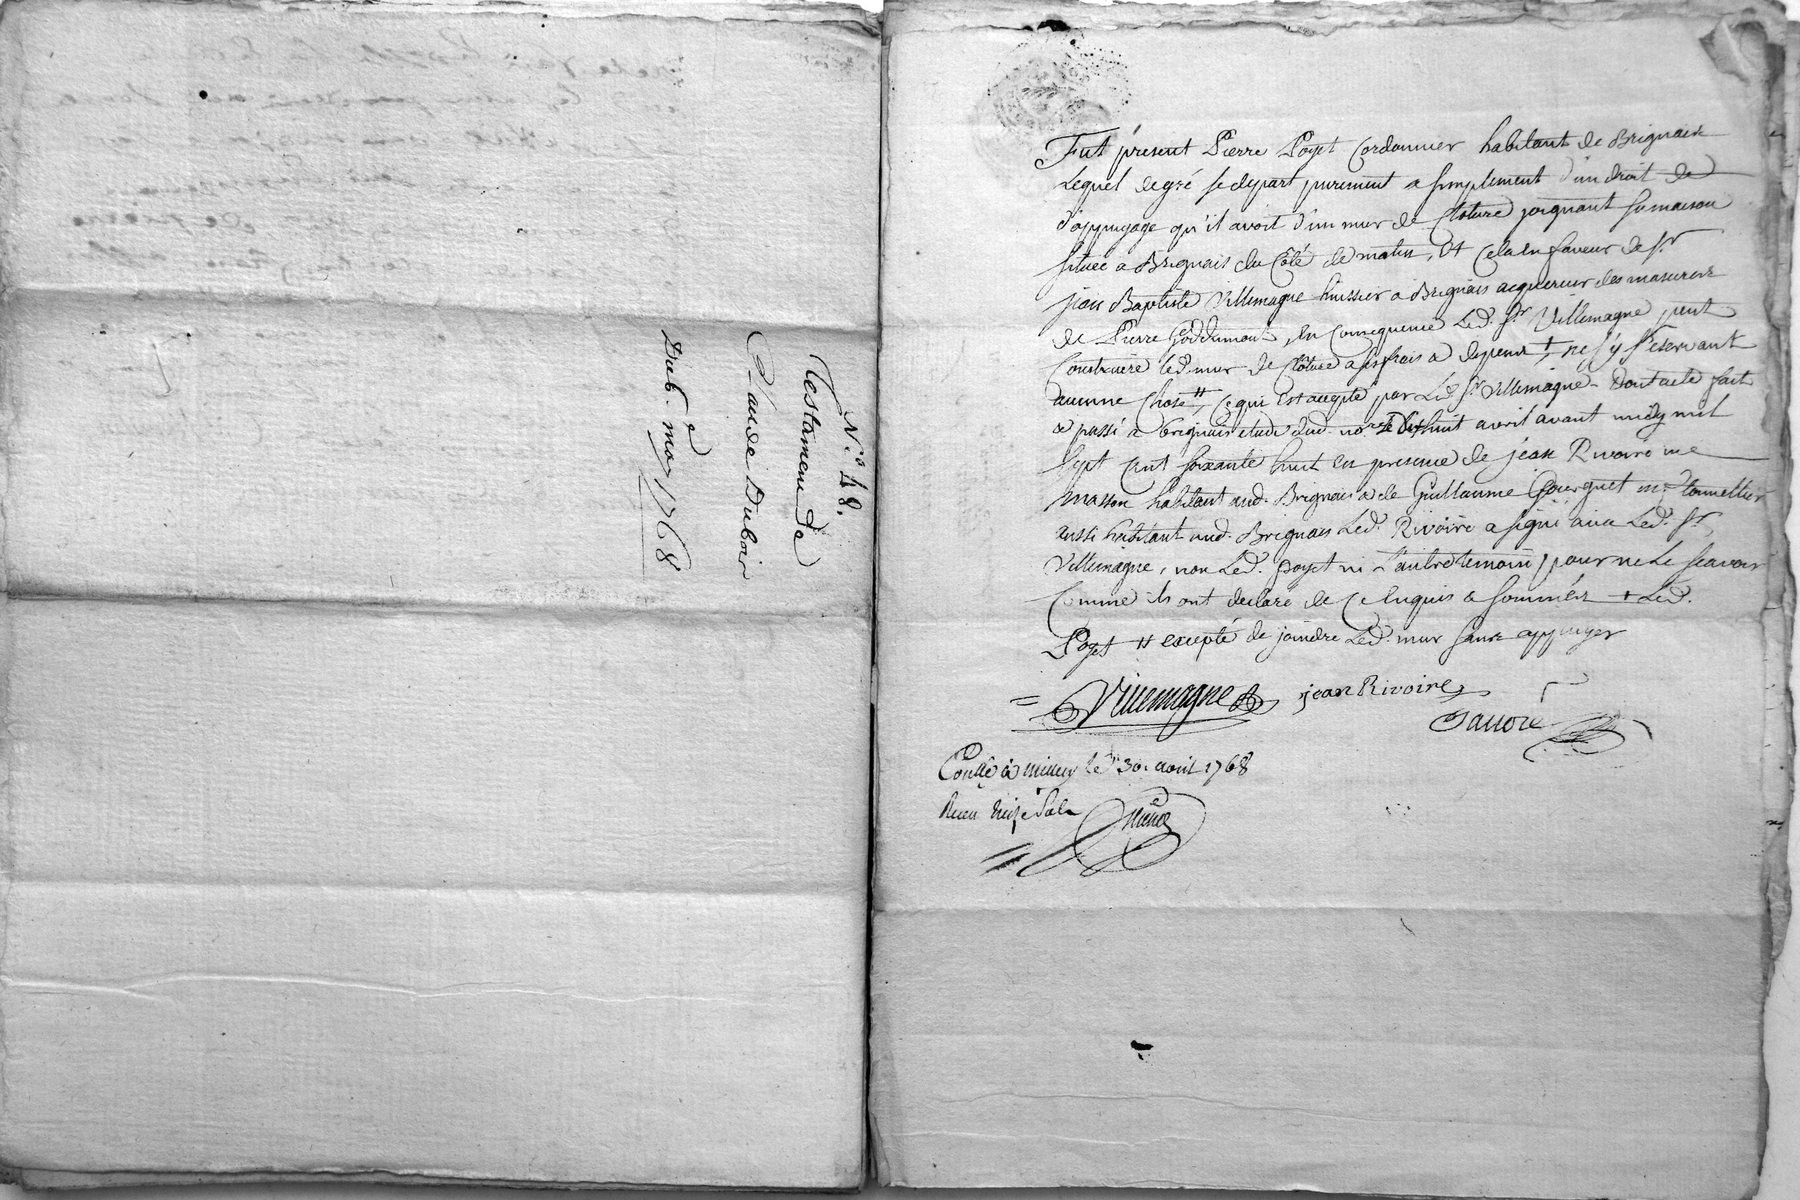 N.° 48.
Testament de
Claude Dubois
Du 6.e may 1768
Fut présent Pierre Poyet Cordonnier habitant de Brignais
Lequel de gré se depart purement & simplement d'un droit de
d'appuyage qu'il avoit d'un mur de Cloture joignant sa maison
située a Brignais du Côté de matin, Et Cela en faveur de Sr
jean Baptiste Villemagne huissier a Brignais acquereur des masures
de Pierre, En Consequence Led. Sr Villemagne peut
Construire led. mur de Clôture a ses frais & depens +, ne s'y reservant
aucune Chose #, Ce qui Est accepté par Led. Sr Villemagne. Dont acte fait
& passé a brignais etude dud. no.re Le dixhuit avril avant midy mil
Sept Cent soixante huit En presence de jéan Rivoire me
masson habitant aud. Brignais & de Guillaume me tonnellier
aussi habitant aud. Brignais Led. Rivoire a signé avec Led. Sr
Villemagne, non Led. poyet ni L'autre temoin pour ne Le sçavoir
Comme ils ont declaré de Ce Enquis & sommés + Led.
Poyet # excepté de joindre Led. mur sans appuyer
Villemagne jean Rivoire
Conllé à millery le 30. avril 1768
Receu treize sols